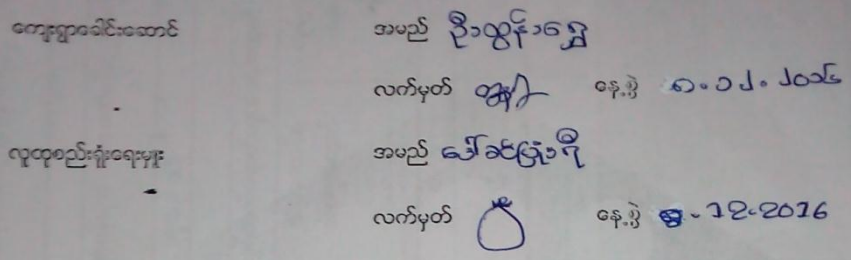 ကျေးရွာခေါင်းဆောင် အမည် ဦးထွန်းရွှေ
လက်မှတ် နေ့စွဲ ၈.၁၂.၂၀၁၆
လူထုစည်းရုံးရေးမှူး အမည် ဒေါ်ခင်ပြုံးရီ
လက်မှတ် နေ့စွဲ .12.2016